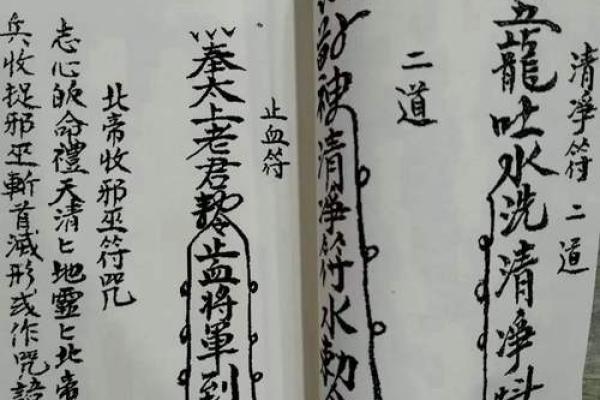 清净符二道
五龍吐水洗清净
二道
神清净符水勅
止血符
奉太上老君勅令止血將軍到
北帝收邪巫符咒
志心皈命禮天清ヒ地靈ヒ北帝
兵收捉邪巫斬首滅形或作咒語